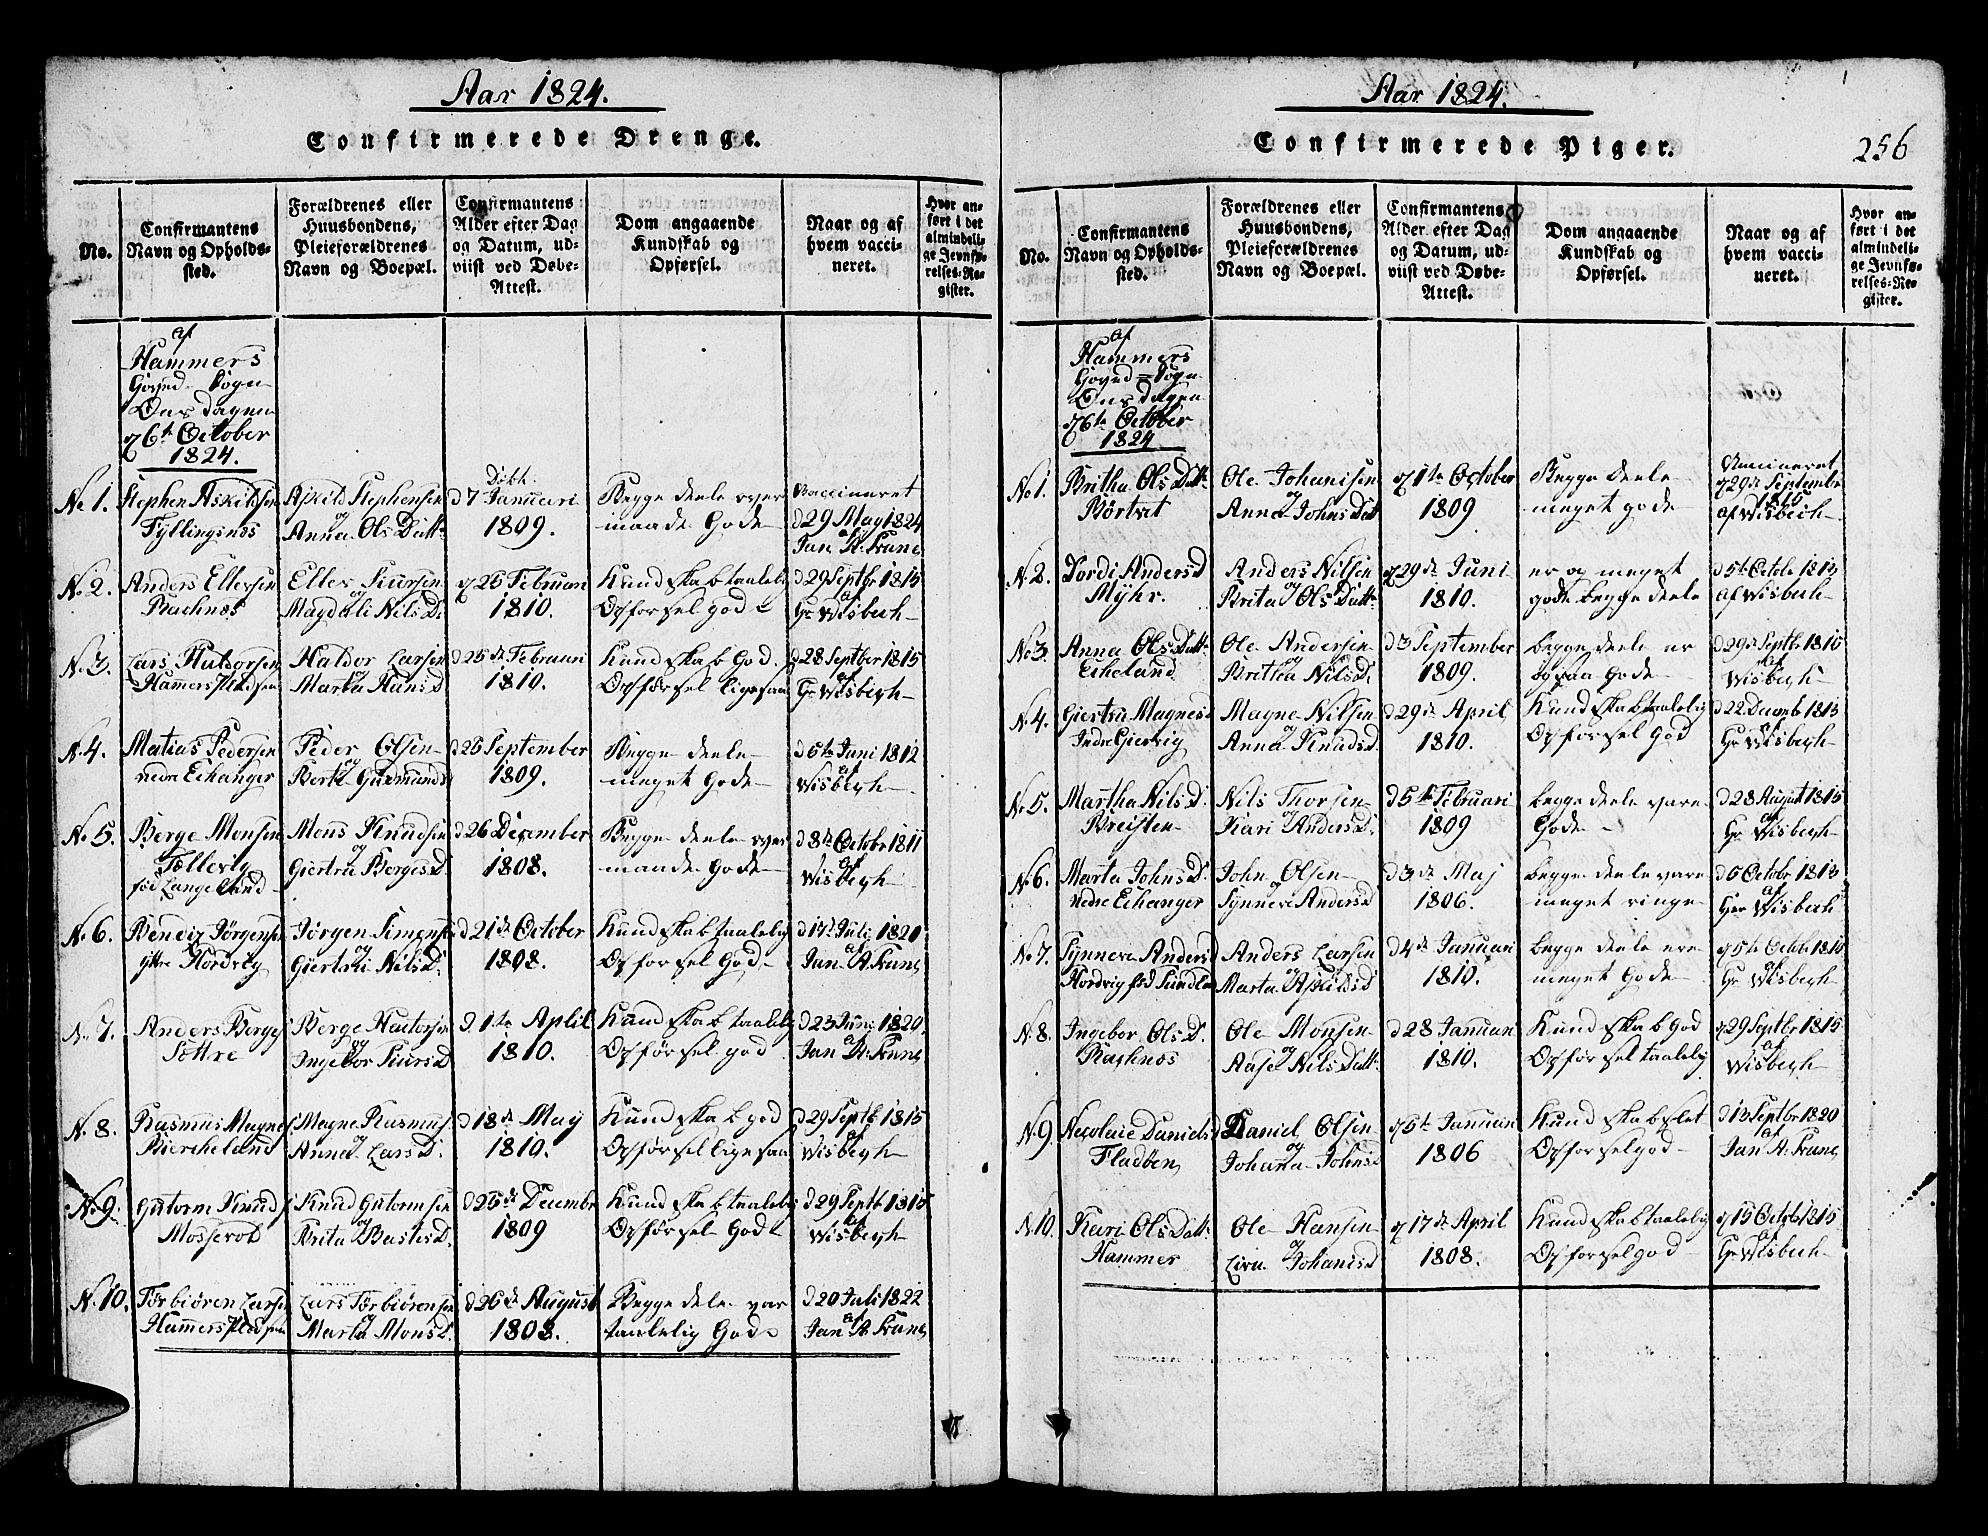 Aar 1824.
Confirmerede Drenge.
No.
Confirmantens
Navn og Opholds-
sted.
Forældrenes eller
Huusbondens,
Pleieforældrenes
Navn og Boepæl.
Confirmantens
Alder efter Dag
og Datum, ud-
viist ved Døbe-
Attest.
Dom angaaende
Kundskab og
Opførsel.
Naar og af
hvem vacci-
neret.
Hvor an-
ført i det
almindeli-
ge Jevnfø-
relses-Re-
gister.
af
Hammers
Sogn
Onsdagen
October
1824.
No 1.
Stephen Askildsen
Tyllingsnæs
Askild Stephensen
og
Anna Ols Datt
Døbt.
d 7 Januari
1809.
Begge deele over
maade Gode
Vaccineret
d 29 May 1824
af
Jan A. Krane
No. 2.
Anders Ellersen
Rachnes
Eller Siursen
og
Magdali Nils D.
d 25 Februari
1810.
Kundskab taalelig
Opførsel god
d 29 Septbr 1815
af
Hr Wisbech
No. 3.
Lars Haldorsen
Hamers Pladsen
Haldor Larsen
og
Marta Hans D.
d 25de Februari
1810.
Kundskab God.
Opførsel ligesaa
d 28 Septber 1815
af
Hr Wisbech
No. 4.
Matias Pedersen
nedre Echanger
Peder Olsen
og
Berte Gudmunds
d 25 September
1809.
Begge deele
meget Gode
d 5te Juni 1812
af
Wisbech
No. 5.
Berge Monsen
Tollevig
fød Langeland
Mons Knudsen
og
Giertru Berges D.
d 26 December
1808.
Begge deele over
maade Gode
d 8de Octobr 1811
af
Wisbech
No. 6.
Bendix Jørgensen
yttre Hordvig
Jørgen Simens
og
Giertru Nils D.
d 21de October
1808.
Kundskab taalelig
Opførsel God
Juli 1820
af
Jan A. Krane
No. 7.
Anders Berges
Sættre
Berge Haldorsen
og
Ingebor Siurs D
d. 1te April
1810.
Kundskab taalelig
Opførsel god
d 23 Juni 1820.
af
Jan A. Krane
No. 8.
Rasmus Magnes
Birckeland
Magne Rasmus
og
Anna Lars D.
d 18de May
1810.
Kundskab god
Opførsel ligesaa
d 29 Septb 1815
af
Wisbech
No. 9.
Gutorm Knuds
Mosserod
Knud Gutormsen
og
Brita Bastes D.
d 25de Decembr
1809
Kundskab taalelig
Opførsel God
d 29 Septb 1815
af
Wisbech
No. 10.
Torbiøren Larsen
Hamers Pladsen
Lars Torbiørensen
og
Marta Mons D.
d 26de August
1808.
Begge dele var
taalelig Gode
d 20 Juli 1822
af
Jan A. Krane
Aar 1824.
Confirmerede Piger.
256
No.
Confirmantens
Navn og Opholds-
sted.
Forældrenes eller
Huusbondens,
Pleieforældrenes
Navn og Boepæl.
Confirmantens
Alder efter Dag
og Datum, ud-
viist ved Døbe-
Attest.
Dom angaaende
Kundskab og
Opførsel.
Naar og af
hvem vacci-
neret.
Hvor an-
ført i det
almindeli-
ge Jevnfø-
relses-Re-
gister.
af
Hammers
Sogn
Onsdagen
October
1824
No 1.
Britha Ols Datt
Børtvet
Ole Johanisen
og
Anna Johns Datt
d 1te October
1809
Begge deele
meget gode
Vaccineret
d 29de Septembr
1815
af Wisbech
No 2.
Lordi Anders D
Myhr.
Anders Nilsen
og
Brita Ols Datt
d 29de Juni
1810.
er og meget
gode begge deele
d 5te Octobr 1813
af Wisbech
No 3.
Anna Ols Datt
Eikeland
Ole Andersen
og
Britha Nils D.
d 3 September
1809.
begge deele er
ogsaa Gode
d 29de Septbr 1815
af
Wisbech
No 4.
Giertru Magnes
Indre Giervig
Magne Nilsen
og
Anna Knuds D.
d 29de April
1810.
Kundskab taalelig
Opførsel God
d 22 Decemb 1813
af
Hr Wisbech
No 5.
Martha Nils D.
Breisten
Nils Thorsen
og
Kari Anders D.
d 5te Februari
1809
begge deele vare
Gode
d 28 August 1815
af
Hr Wisbech
No 6.
Marta Johns D.
nedre Echanger
John Olsen
og
Synneve Anders D
d 3de Maj
1806.
begge deele vare
meget ringe
d 5 Octobr 1813
af
Herr Wisbech
No 7.
Synneve Anders
Hordvig fød
Anders Larsen
og
Marta Askilds D
d 4de Januari
1810.
begge deele ere
meget Gode
d 5te Octobr 1810
af
Hr Wisbech
No 8.
Ingebor Ols D.
Rachnes
Ole Monsen
og
Aase Nils Datt
d 28 Januari
1810.
Kundskab God
Opførsel taalelig
d 29 Septbr 1815
af
Wisbech
No 9.
Nicolaie Daniels D
Fladøen
Daniel Olsen
og
Johanna Johns D
d 5te Januari
1806
Kundskab slet
Opførsel god
d 13 Septbr 1820
af
Jan A. Krane
No 10.
Kari Ols Datt
Hammer
Ole Hansen
og
Johanis D
d 17de April
1808.
Kundskab taalelig
Opførsel god
d 15 Octob 1815
af
Hr Wisbech